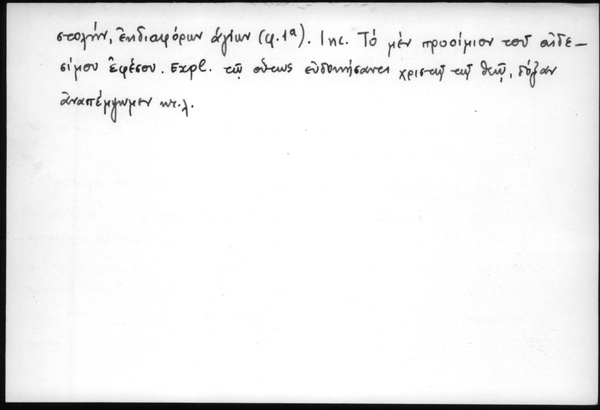 στολήν, ἐκ διαφόρων ἁγίων (φ. 1α). Inc. Τὸ μὲν προοίμιον τοῦ αἰδε-
σίμου ἐφέσου. Expl. τῷ οὕτως εὐδοκήσαντι χριστῷ τῷ θεῷ, δόξαν
ἀναπέμψωμεν κτ.λ.